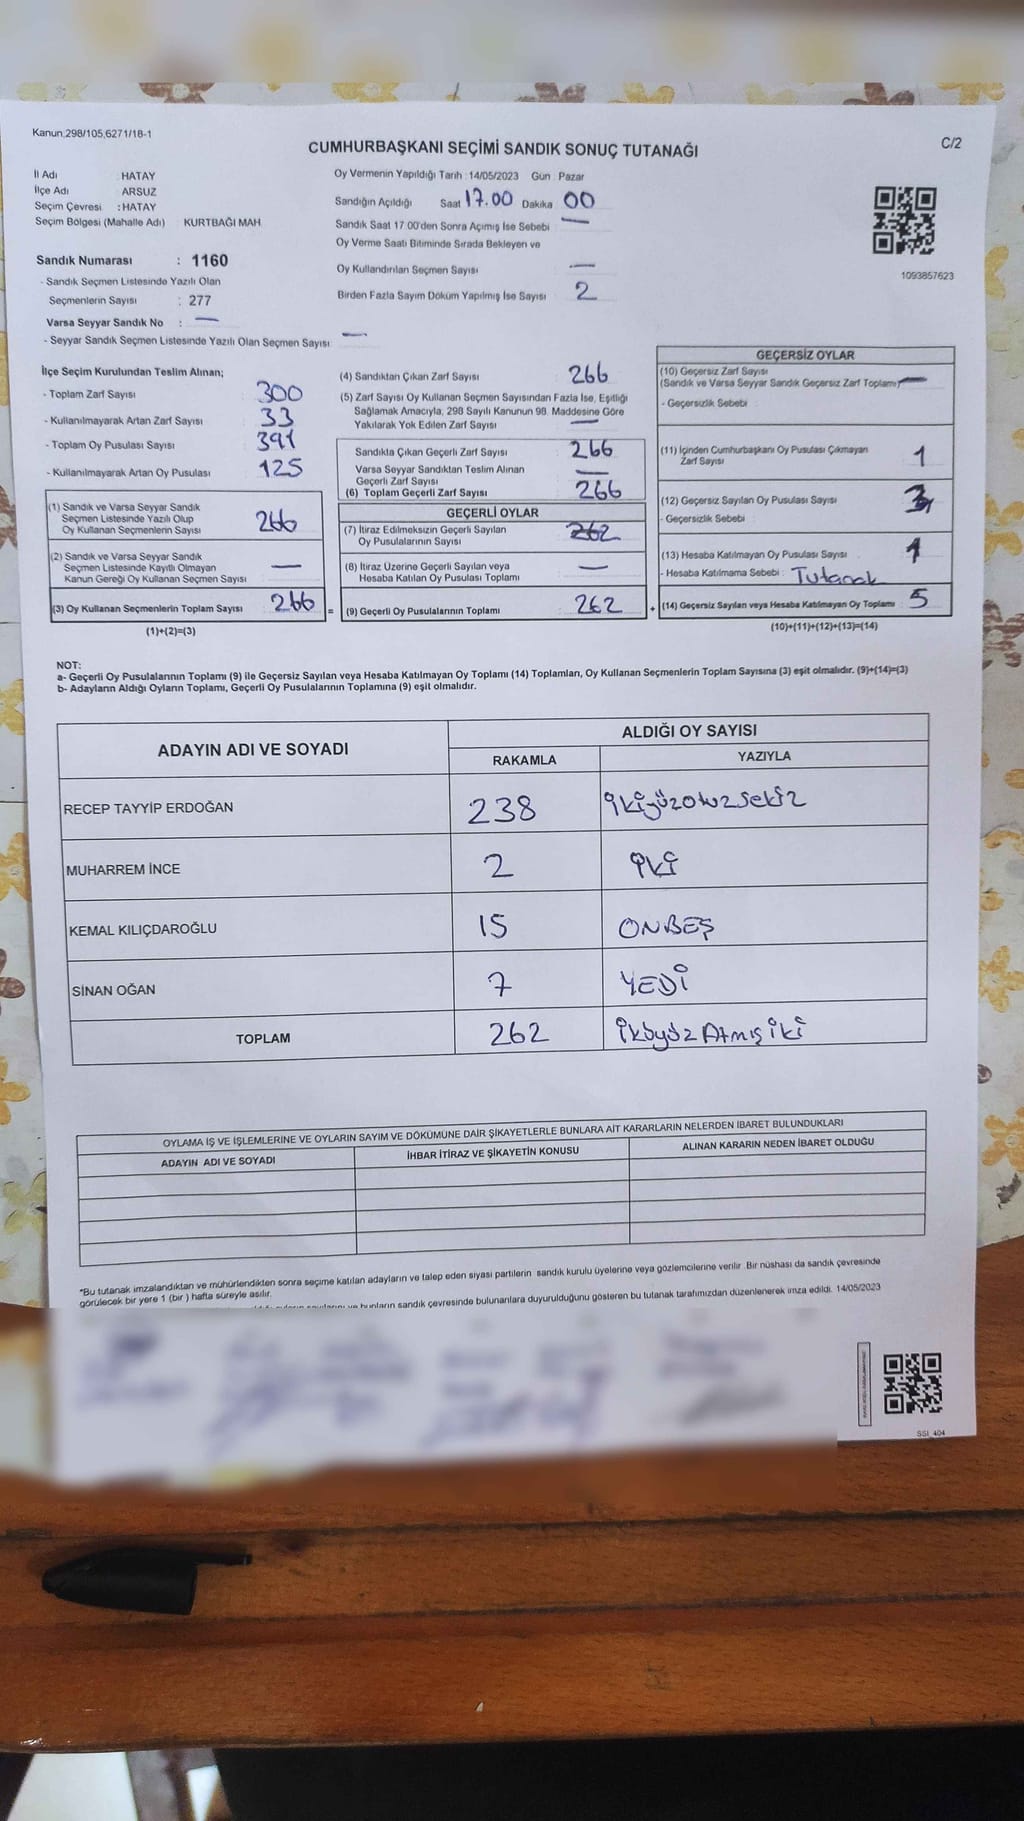 Kanun,298/105,6271/18-1
CUMHURBAŞKANI SEÇİMİ SANDIK SONUÇ TUTANAĞI
C/2
İl Adı : HATAY
İlçe Adı : ARSUZ
Seçim Çevresi : HATAY
Seçim Bölgesi (Mahalle Adı) : KURTBAĞI MAH.
Sandık Numarası : 1160
- Sandık Seçmen Listesinde Yazılı Olan
Seçmenlerin Sayısı : 277
Varsa Seyyar Sandık No : —
- Seyyar Sandık Seçmen Listesinde Yazılı Olan Seçmen Sayısı: —
Oy Vermenin Yapıldığı Tarih : 14/05/2023 Gün : Pazar
Sandığın Açıldığı Saat 17.00 Dakika 00
Sandık Saat 17.00'den Sonra Açımış İse Sebebi —
Oy Verme Saati Bitiminde Sırada Bekleyen ve
Oy Kullandırılan Seçmen Sayısı —
Birden Fazla Sayım Döküm Yapılmış İse Sayısı 2
1093857623
İlçe Seçim Kurulundan Teslim Alınan;
- Toplam Zarf Sayısı 300
- Kullanılmayarak Artan Zarf Sayısı 33
- Toplam Oy Pusulası Sayısı 391
- Kullanılmayarak Artan Oy Pusulası 125
(1) Sandık ve Varsa Seyyar Sandık
Seçmen Listesinde Yazılı Olup
Oy Kullanan Seçmenlerin Sayısı 266
(2) Sandık ve Varsa Seyyar Sandık
Seçmen Listesinde Kayıtlı Olmayan
Kanun Gereği Oy Kullanan Seçmen Sayısı —
(3) Oy Kullanan Seçmenlerin Toplam Sayısı 266 =
(1)+(2)=(3)
(4) Sandıktan Çıkan Zarf Sayısı 266
(5) Zarf Sayısı Oy Kullanan Seçmen Sayısından Fazla İse, Eşitliği
Sağlamak Amacıyla, 298 Sayılı Kanunun 98. Maddesine Göre
Yakılarak Yok Edilen Zarf Sayısı —
Sandıkta Çıkan Geçerli Zarf Sayısı 266
Varsa Seyyar Sandıktan Teslim Alınan
Geçerli Zarf Sayısı —
(6) Toplam Geçerli Zarf Sayısı 266
GEÇERLİ OYLAR
(7) İtiraz Edilmeksizin Geçerli Sayılan
Oy Pusulalarının Sayısı 262
(8) İtiraz Üzerine Geçerli Sayılan veya
Hesaba Katılan Oy Pusulası Toplamı —
(9) Geçerli Oy Pusulalarının Toplamı 262 +
GEÇERSİZ OYLAR
(10) Geçersiz Zarf Sayısı
(Sandık ve Varsa Seyyar Sandık Geçersiz Zarf Toplamı) —
- Geçersizlik Sebebi :
(11) İçinden Cumhurbaşkanı Oy Pusulası Çıkmayan
Zarf Sayısı 1
(12) Geçersiz Sayılan Oy Pusulası Sayısı 3
- Geçersizlik Sebebi :
(13) Hesaba Katılmayan Oy Pusulası Sayısı : 1
- Hesaba Katılmama Sebebi : Tutanak
(14) Geçersiz Sayılan veya Hesaba Katılmayan Oy Toplamı : 5
(10)+(11)+(12)+(13)=(14)
NOT:
a- Geçerli Oy Pusulalarının Toplamı (9) ile Geçersiz Sayılan veya Hesaba Katılmayan Oy Toplamı (14) Toplamları, Oy Kullanan Seçmenlerin Toplam Sayısına (3) eşit olmalıdır. (9)+(14)=(3)
b- Adayların Aldığı Oyların Toplamı, Geçerli Oy Pusulalarının Toplamına (9) eşit olmalıdır.
ADAYIN ADI VE SOYADI
ALDIĞI OY SAYISI
RAKAMLA YAZIYLA
RECEP TAYYİP ERDOĞAN 238 ikiyüzotuzsekiz
MUHARREM İNCE 2 iki
KEMAL KILIÇDAROĞLU 15 ONBEŞ
SİNAN OĞAN 7 YEDİ
TOPLAM 262 ikiyüz Atmış iki
OYLAMA İŞ VE İŞLEMLERİNE VE OYLARIN SAYIM VE DÖKÜMÜNE DAİR ŞİKAYETLERLE BUNLARA AİT KARARLARIN NELERDEN İBARET BULUNDUKLARI
ADAYIN ADI VE SOYADI İHBAR İTİRAZ VE ŞİKAYETİN KONUSU ALINAN KARARIN NEDEN İBARET OLDUĞU
*Bu tutanak imzalandıktan ve mühürlendikten sonra seçime katılan adayların ve talep eden siyasi partilerin sandık kurulu üyelerine veya gözlemcilerine verilir .Bir nüshası da sandık çevresinde
görülecek bir yere 1 (bir ) hafta süreyle asılır.
bunların sandık çevresinde bulunanlara duyurulduğunu gösteren bu tutanak tarafımızdan düzenlenerek imza edildi. 14/05/2023
SSİ_404